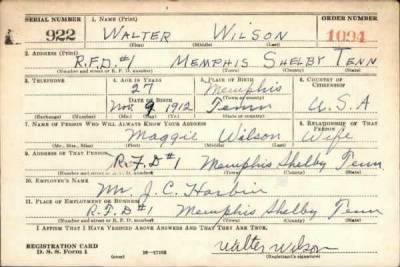 SERIAL NUMBER 1. NAME (Print) ORDER NUMBER
922 WALTER WILSON 1094
(First) (Middle) (Last)
2. ADDRESS (Print)
R.F.D. #1 MEMPHIS SHELBY TENN
(Number and street or R. F. D. number) (Town) (County) (State)
3. TELEPHONE 4. AGE IN YEARS 5. PLACE OF BIRTH 6. COUNTRY OF CITIZENSHIP
27 Memphis
DATE OF BIRTH (Town or county)
Nov 9 1912 Tenn U.S.A
(Exchange) (Number) (Mo.) (Day) (Yr.) (State or country)
7. NAME OF PERSON WHO WILL ALWAYS KNOW YOUR ADDRESS 8. RELATIONSHIP OF THAT PERSON
Maggie Wilson Wife
(Mr., Mrs., Miss) (First) (Middle) (Last)
9. ADDRESS OF THAT PERSON
R.F.D #1 Memphis Shelby Tenn
(Number and street or R. F. D. number) (Town) (County) (State)
10. EMPLOYER'S NAME
Mr. J. C. Harbin
11. PLACE OF EMPLOYMENT OR BUSINESS
R.F.D #1 Memphis Shelby Tenn
(Number and street or R. F. D. number) (Town) (County) (State)
I AFFIRM THAT I HAVE VERIFIED ABOVE ANSWERS AND THAT THEY ARE TRUE.
REGISTRATION CARD
D. S. S. Form 1 (over) Walter Wilson
(Registrant's signature)